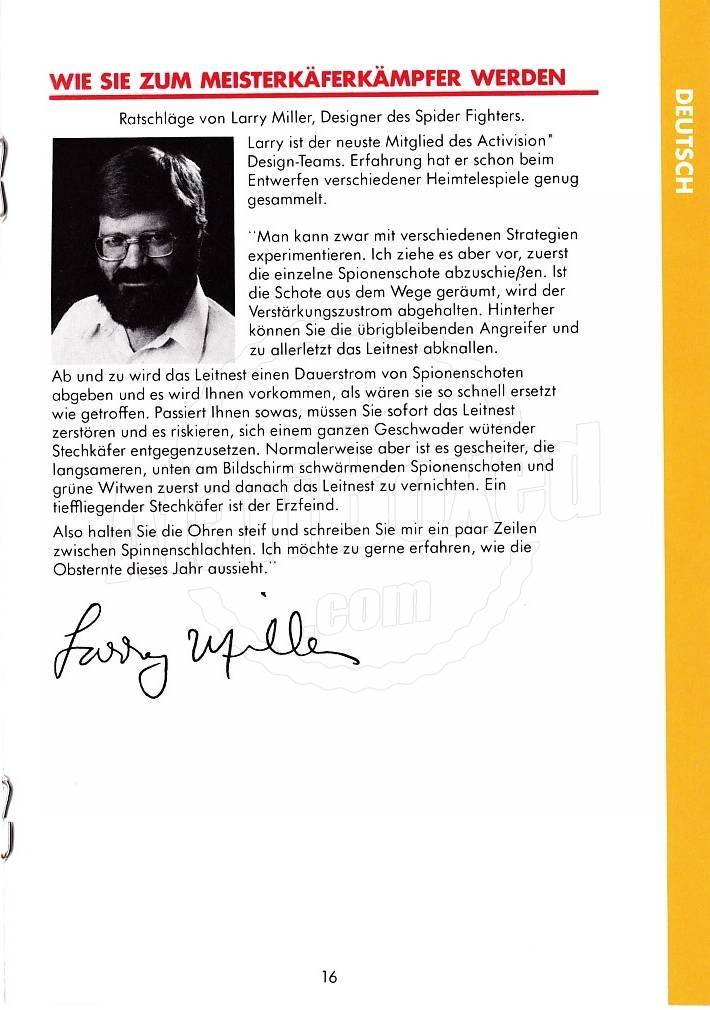 WIE SIE ZUM MEISTERKÄFERKÄMPFER WERDEN
Ratschläge von Larry Miller, Designer des Spider Fighters.
Larry ist der neuste Mitglied des Activision"
Design-Teams. Erfahrung hat er schon beim
Entwerfen verschiedener Heimtelespiele genug
gesammelt.
"Man kann zwar mit verschiedenen Strategien
experimentieren. Ich ziehe es aber vor, zuerst
die einzelne Spionenschote abzuschießen. Ist
die Schote aus dem Wege geräumt, wird der
Verstärkungszustrom abgehalten. Hinterher
können Sie die übrigbleibenden Angreifer und
zu allerletzt das Leitnest abknallen.
Ab und zu wird das Leitnest einen Dauerstrom von Spionenschoten
abgeben und es wird Ihnen vorkommen, als wären sie so schnell ersetzt
wie getroffen. Passiert Ihnen sowas, müssen Sie sofort das Leitnest
zerstören und es riskieren, sich einem ganzen Geschwader wütender
Stechkäfer entgegenzusetzen. Normalerweise aber ist es gescheiter, die
langsameren, unten am Bildschirm schwärmenden Spionenschoten und
grüne Witwen zuerst und danach das Leitnest zu vernichten. Ein
tieffliegender Stechkäfer ist der Erzfeind.
Also halten Sie die Ohren steif und schreiben Sie mir ein paar Zeilen
zwischen Spinnenschlachten. Ich möchte zu gerne erfahren, wie die
Obsternte dieses Jahr aussieht."
Larry Miller
16
DEUTSCH
.com